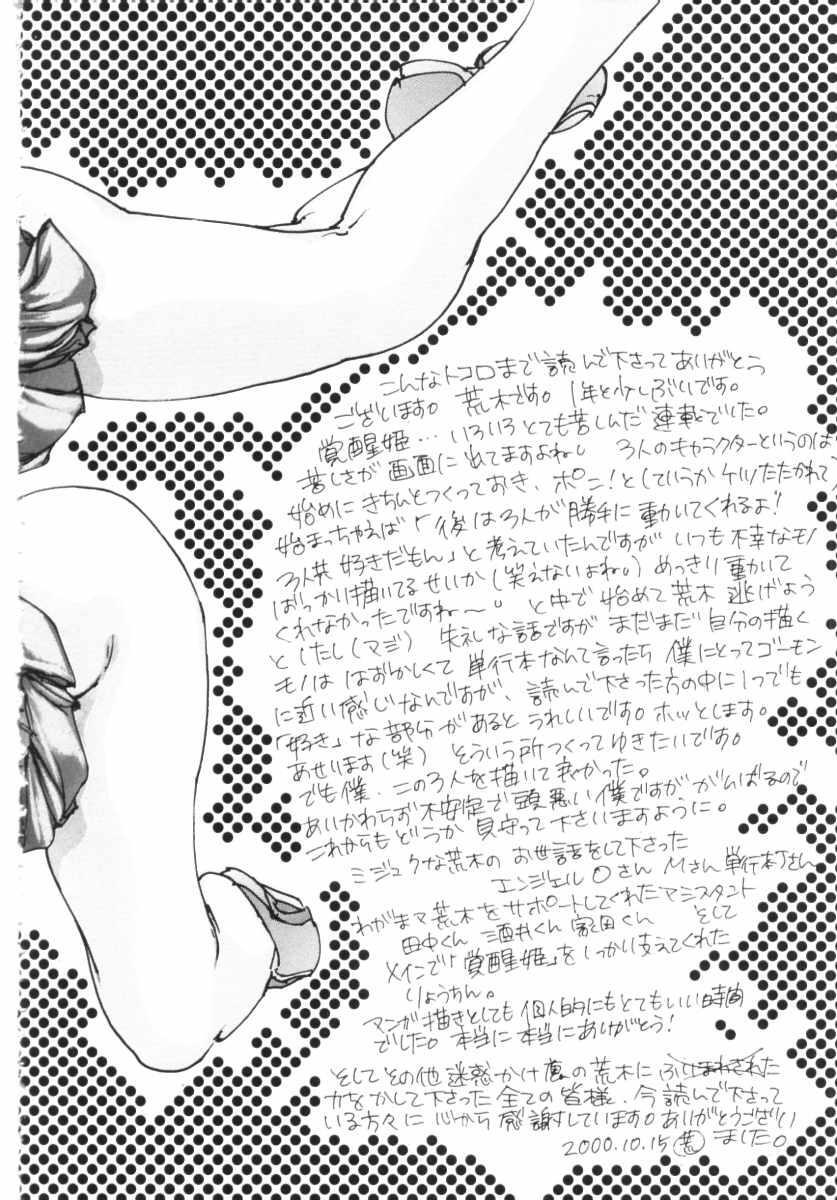 こんなトコロまで読んで下さってありがとう
ございます。荒木です。1年と少しぶりです。
覚醒姫…いろいろとても苦しんだ連載でした。
苦しさが画面に出てますよね。3人のキャラクターというのは
始めにきちんとつくっておき、ポン!としていうかケツたたかれて
始まっちゃえば「後は3人が勝手に動いてくれるよ!
3人共好きだもん」と考えていたんですがいつも不幸なモノ
ばっかり描いてるせいか(笑えないよね。)めっきり動いて
くれなかったですね〜。と中で始めて荒木逃げよう
としたし(マジ) 失礼な話ですがまだまだ自分の描く
モノははずかしくて単行本なんて言ったら僕にとってゴーモン
に近い感じなんですが、読んで下さった方の中に1つでも
「好き」な部分があるとうれしいです。ホッとします。
あせります(笑) そういう所つくってゆきたいです。
でも僕、この3人を描いて良かった。
あいかわらず不安定で頭悪い僕ですががんばるので
これからもどうか見守って下さいますように。
ミジュクな荒木のお世話をして下さった
エンジェルOさん Mさん 単行本Tさん
わがまマ荒木をサポートしてくれたアシスタント
田中くん 酒井くん 家田くん そして
メインで「覚醒姫」をしっかり支えてくれた
りょうちん。
マンガ描きとしても個人的にもとてもいい時間
でした。本当に本当にありがとう!
そしてその他迷惑かけ の荒木に
力をかして下さった全ての皆様、今読んで下さって
いる方々に心から感謝しています。ありがとうござい
2000.10.15 荒 ました。